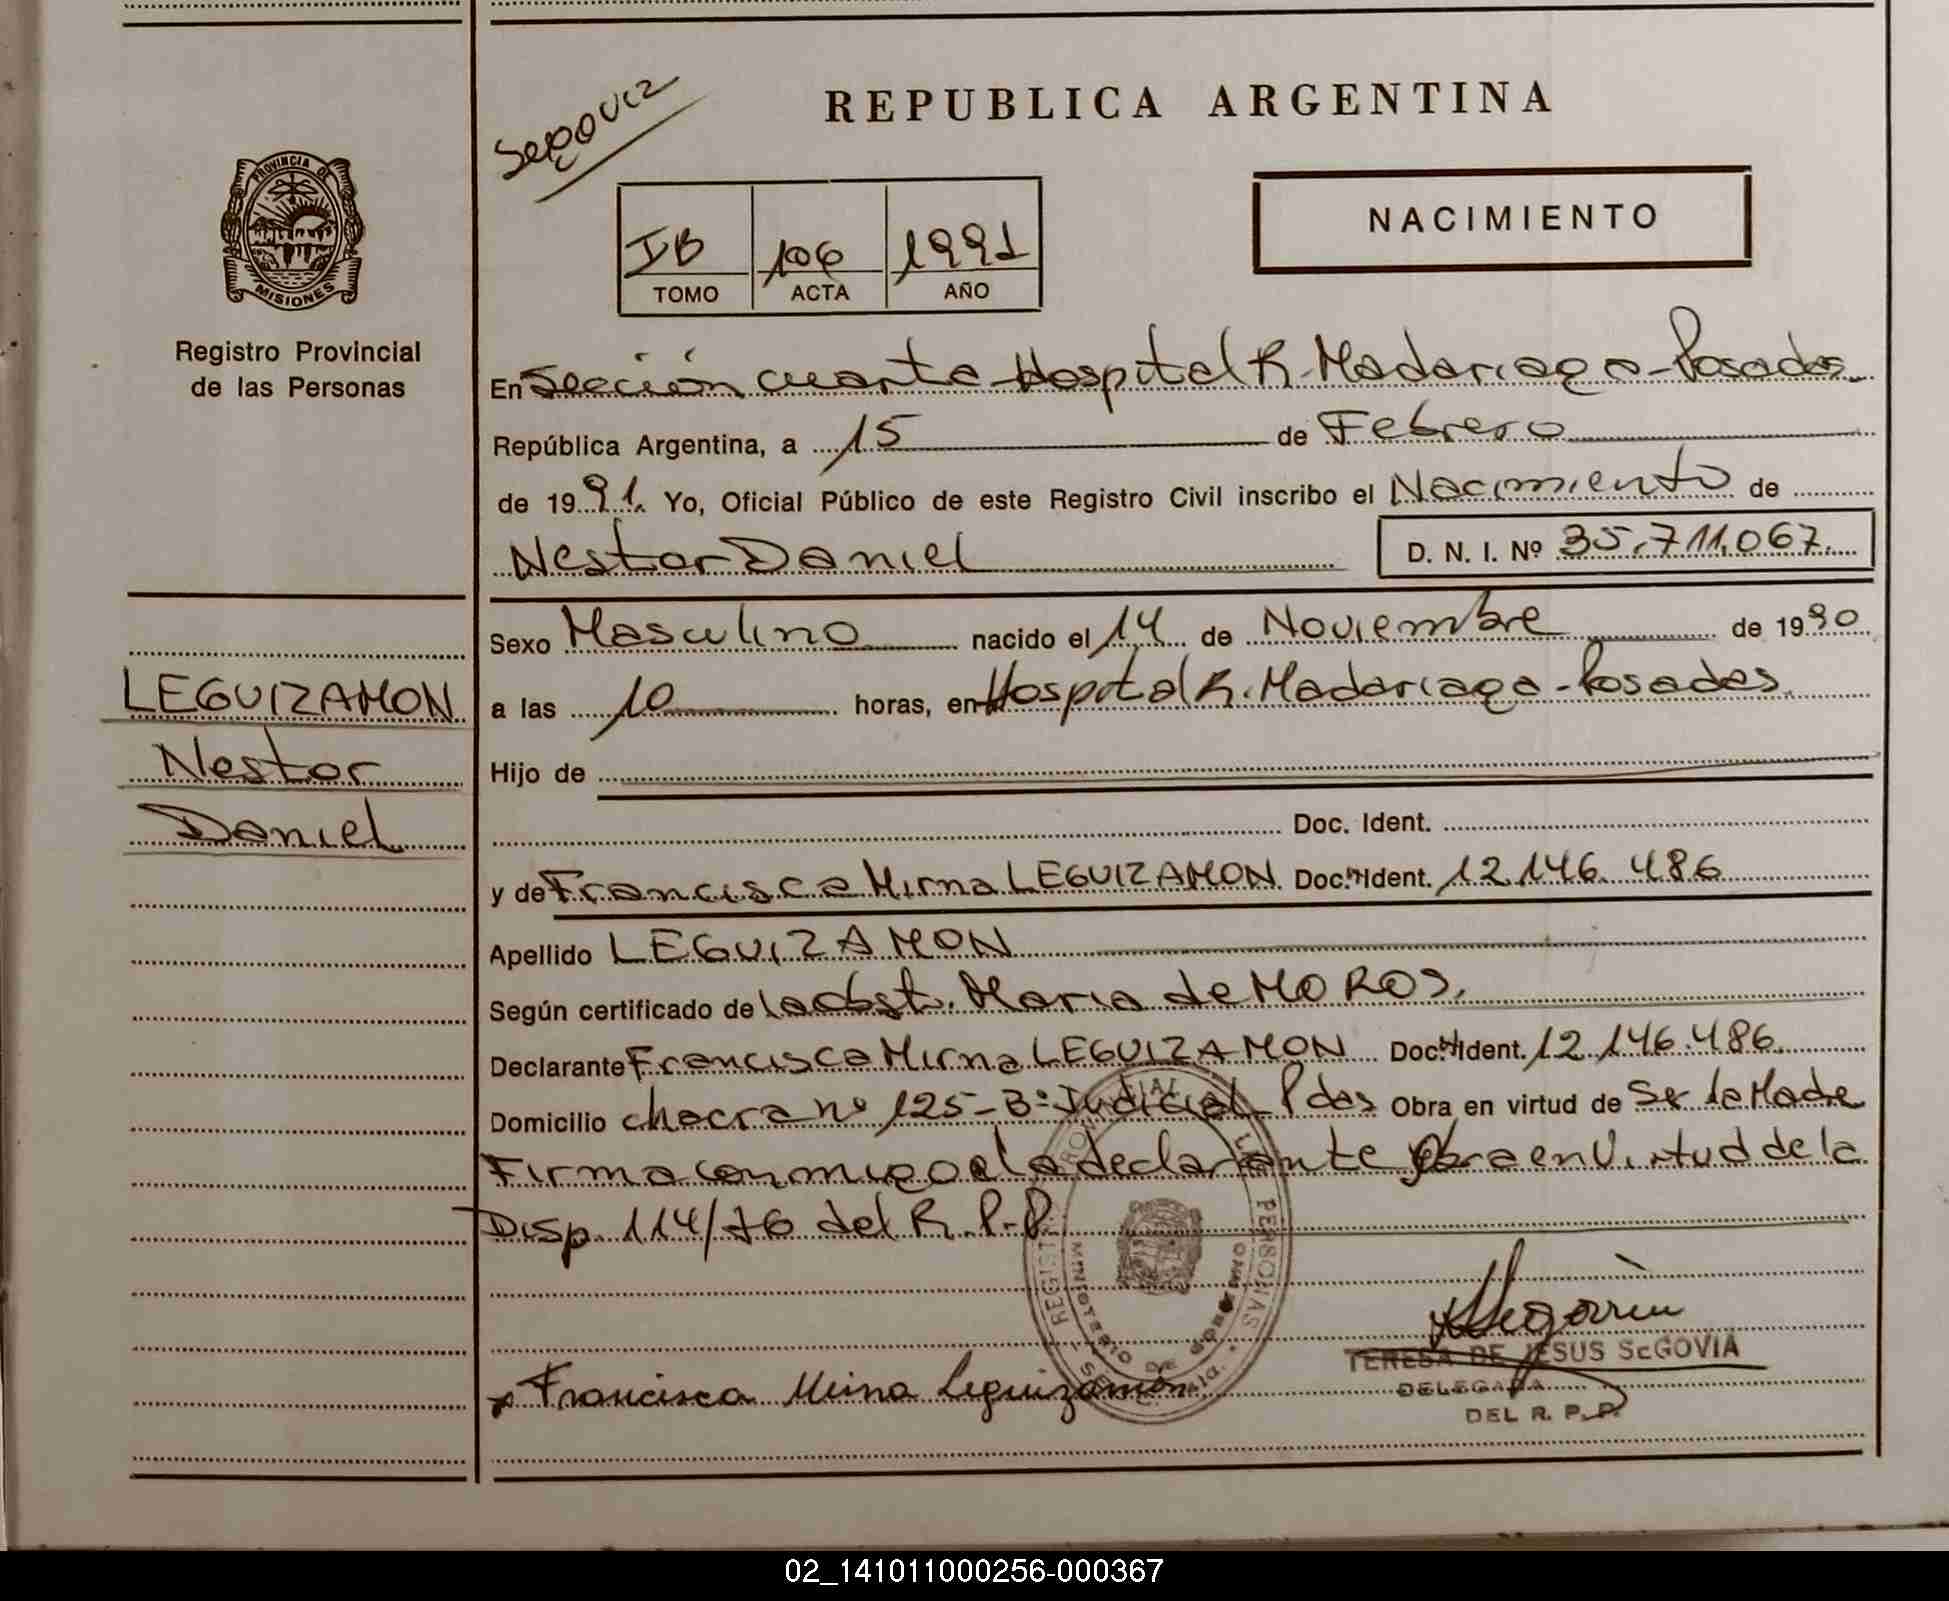 REPUBLICA ARGENTINA
NACIMIENTO
IB 106 1991
TOMO ACTA AÑO
PROVINCIA DE
MISIONES
Registro Provincial
de las Personas
En Sección cuarta Hospital R. Madariaga - Posadas
República Argentina, a 15 de Febrero
de 1991. Yo, Oficial Público de este Registro Civil inscribo el Nacimiento de
Nestor Daniel D. N. I. Nº 35.711.067.
Sexo Masculino nacido el 14 de Noviembre de 1990
a las 10 horas, en Hospital R. Madariaga - Posadas
Hijo de
Doc. Ident.
y de Francisca Mirna LEGUIZAMON Doc. Ident. 12.146.486
Apellido LEGUIZAMON
Según certificado de la obst. Maria de MOROS.
Declarante Francisca Mirna LEGUIZAMON Doc. Ident. 12.146.486
Domicilio chacra nº 125 - Bº Judicial Pdas Obra en virtud de Ser la Madre
Firma conmigo la declarante Obra en Virtud de la
Disp. 114/76 del R.P.P.
LEGUIZAMON
Nestor
Daniel
Francisca Mirna Leguizamón
TERESA DE JESUS SEGOVIA
DELEGADA
DEL R. P. P.
02_141011000256-000367